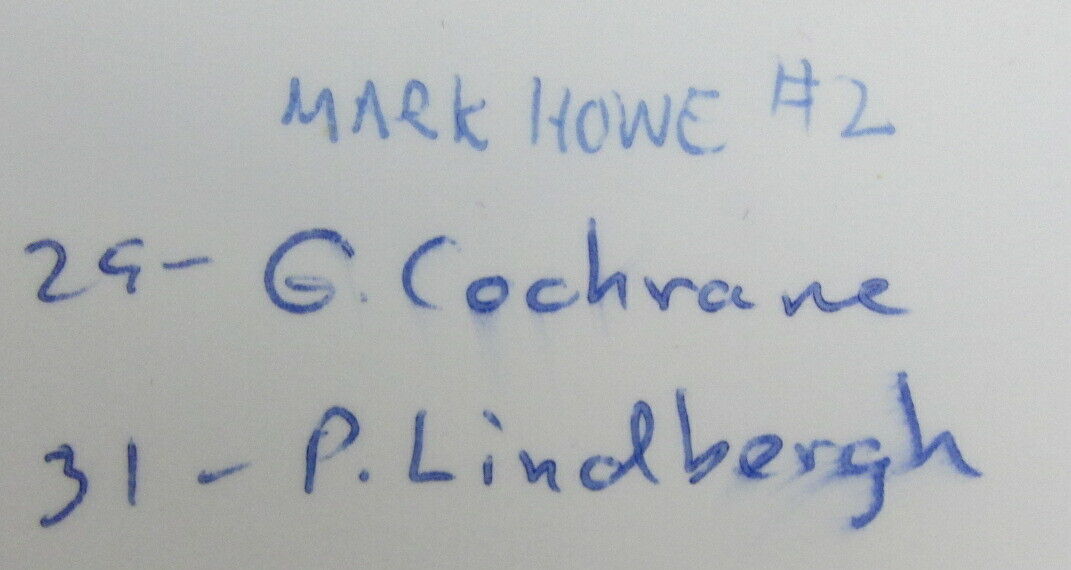 MARK HOWE #2
29- G. Cochrane
31 - P. Lindbergh